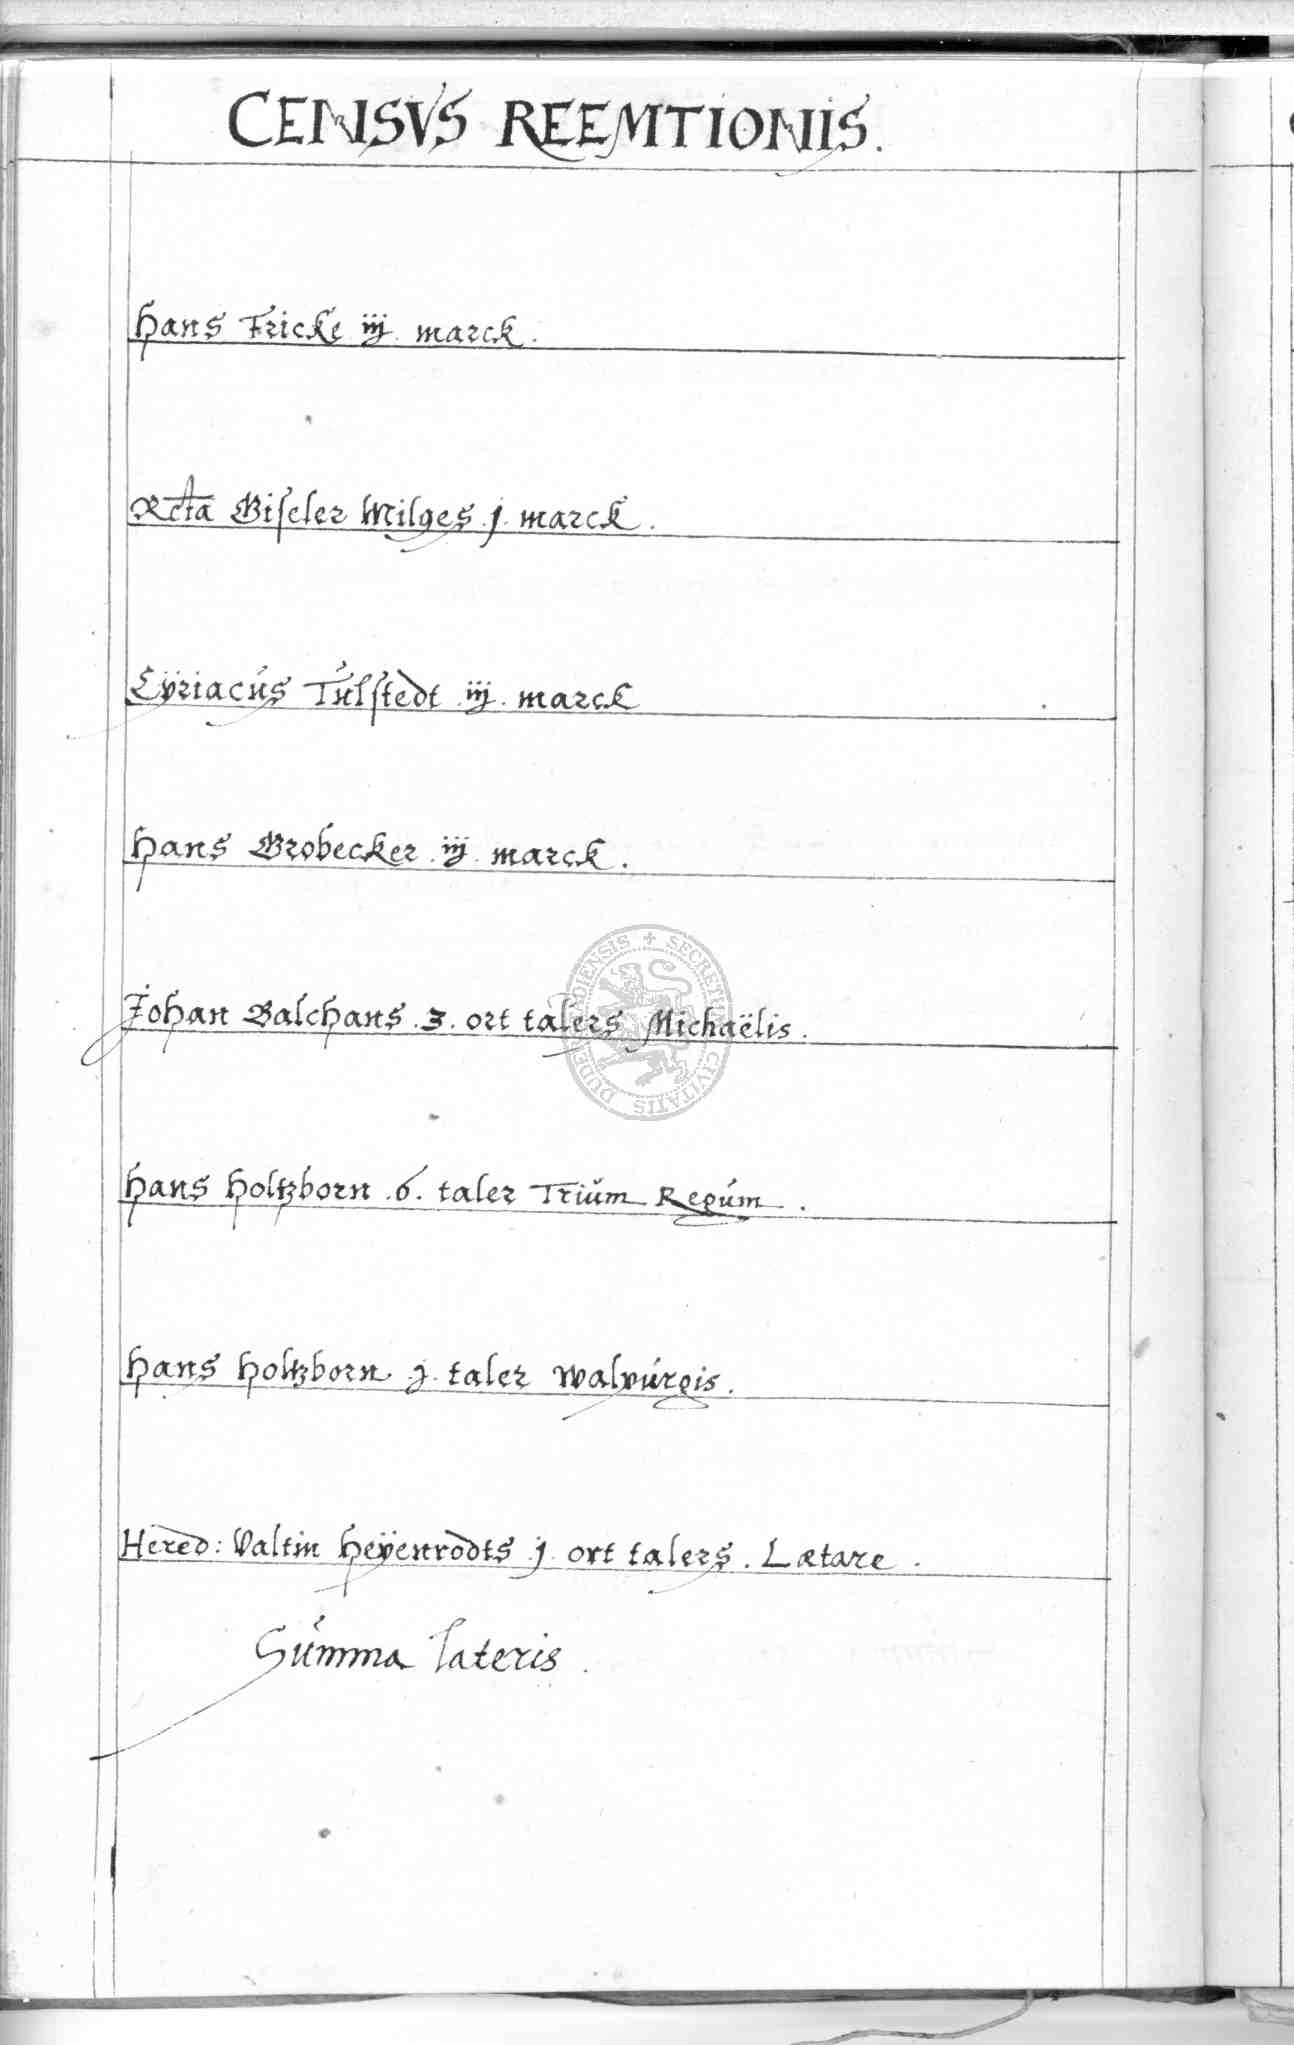 CENSVS REEMTIONIS.
Hans Fricke iij. marck.
Rcta Giseler Milges .j. marck.
Cÿriacus Tulstedt .iij. marck
Hans Brobecker .iij. marck.
Johan Balchans .3. ort talers Michaëlis.
Hans Holtzborn .6. taler Trium Regum.
Hans Holtzborn .j. taler Walpurgis.
Hered: Valtin Heÿenrodts .j. ort talers. Lætare.
Summa lateris.
SECRETUM CIVITATIS DUDERSTADIENSIS